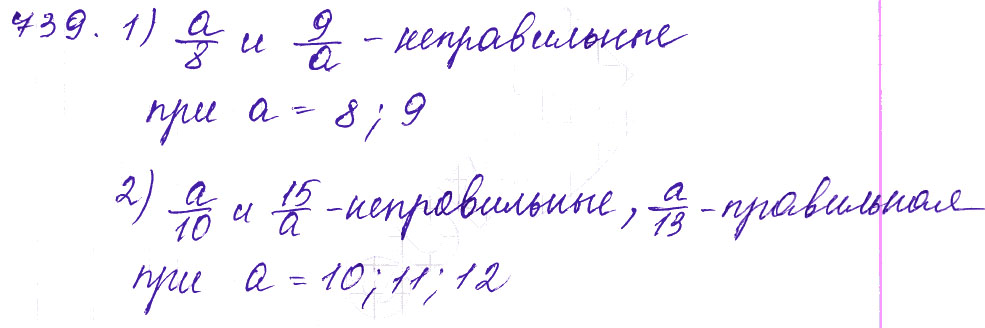 739. 1) a/8 и 9/a - неправильные
при a = 8; 9
2) a/10 и 15/a - неправильные, a/13 - правильная
при a = 10; 11; 12